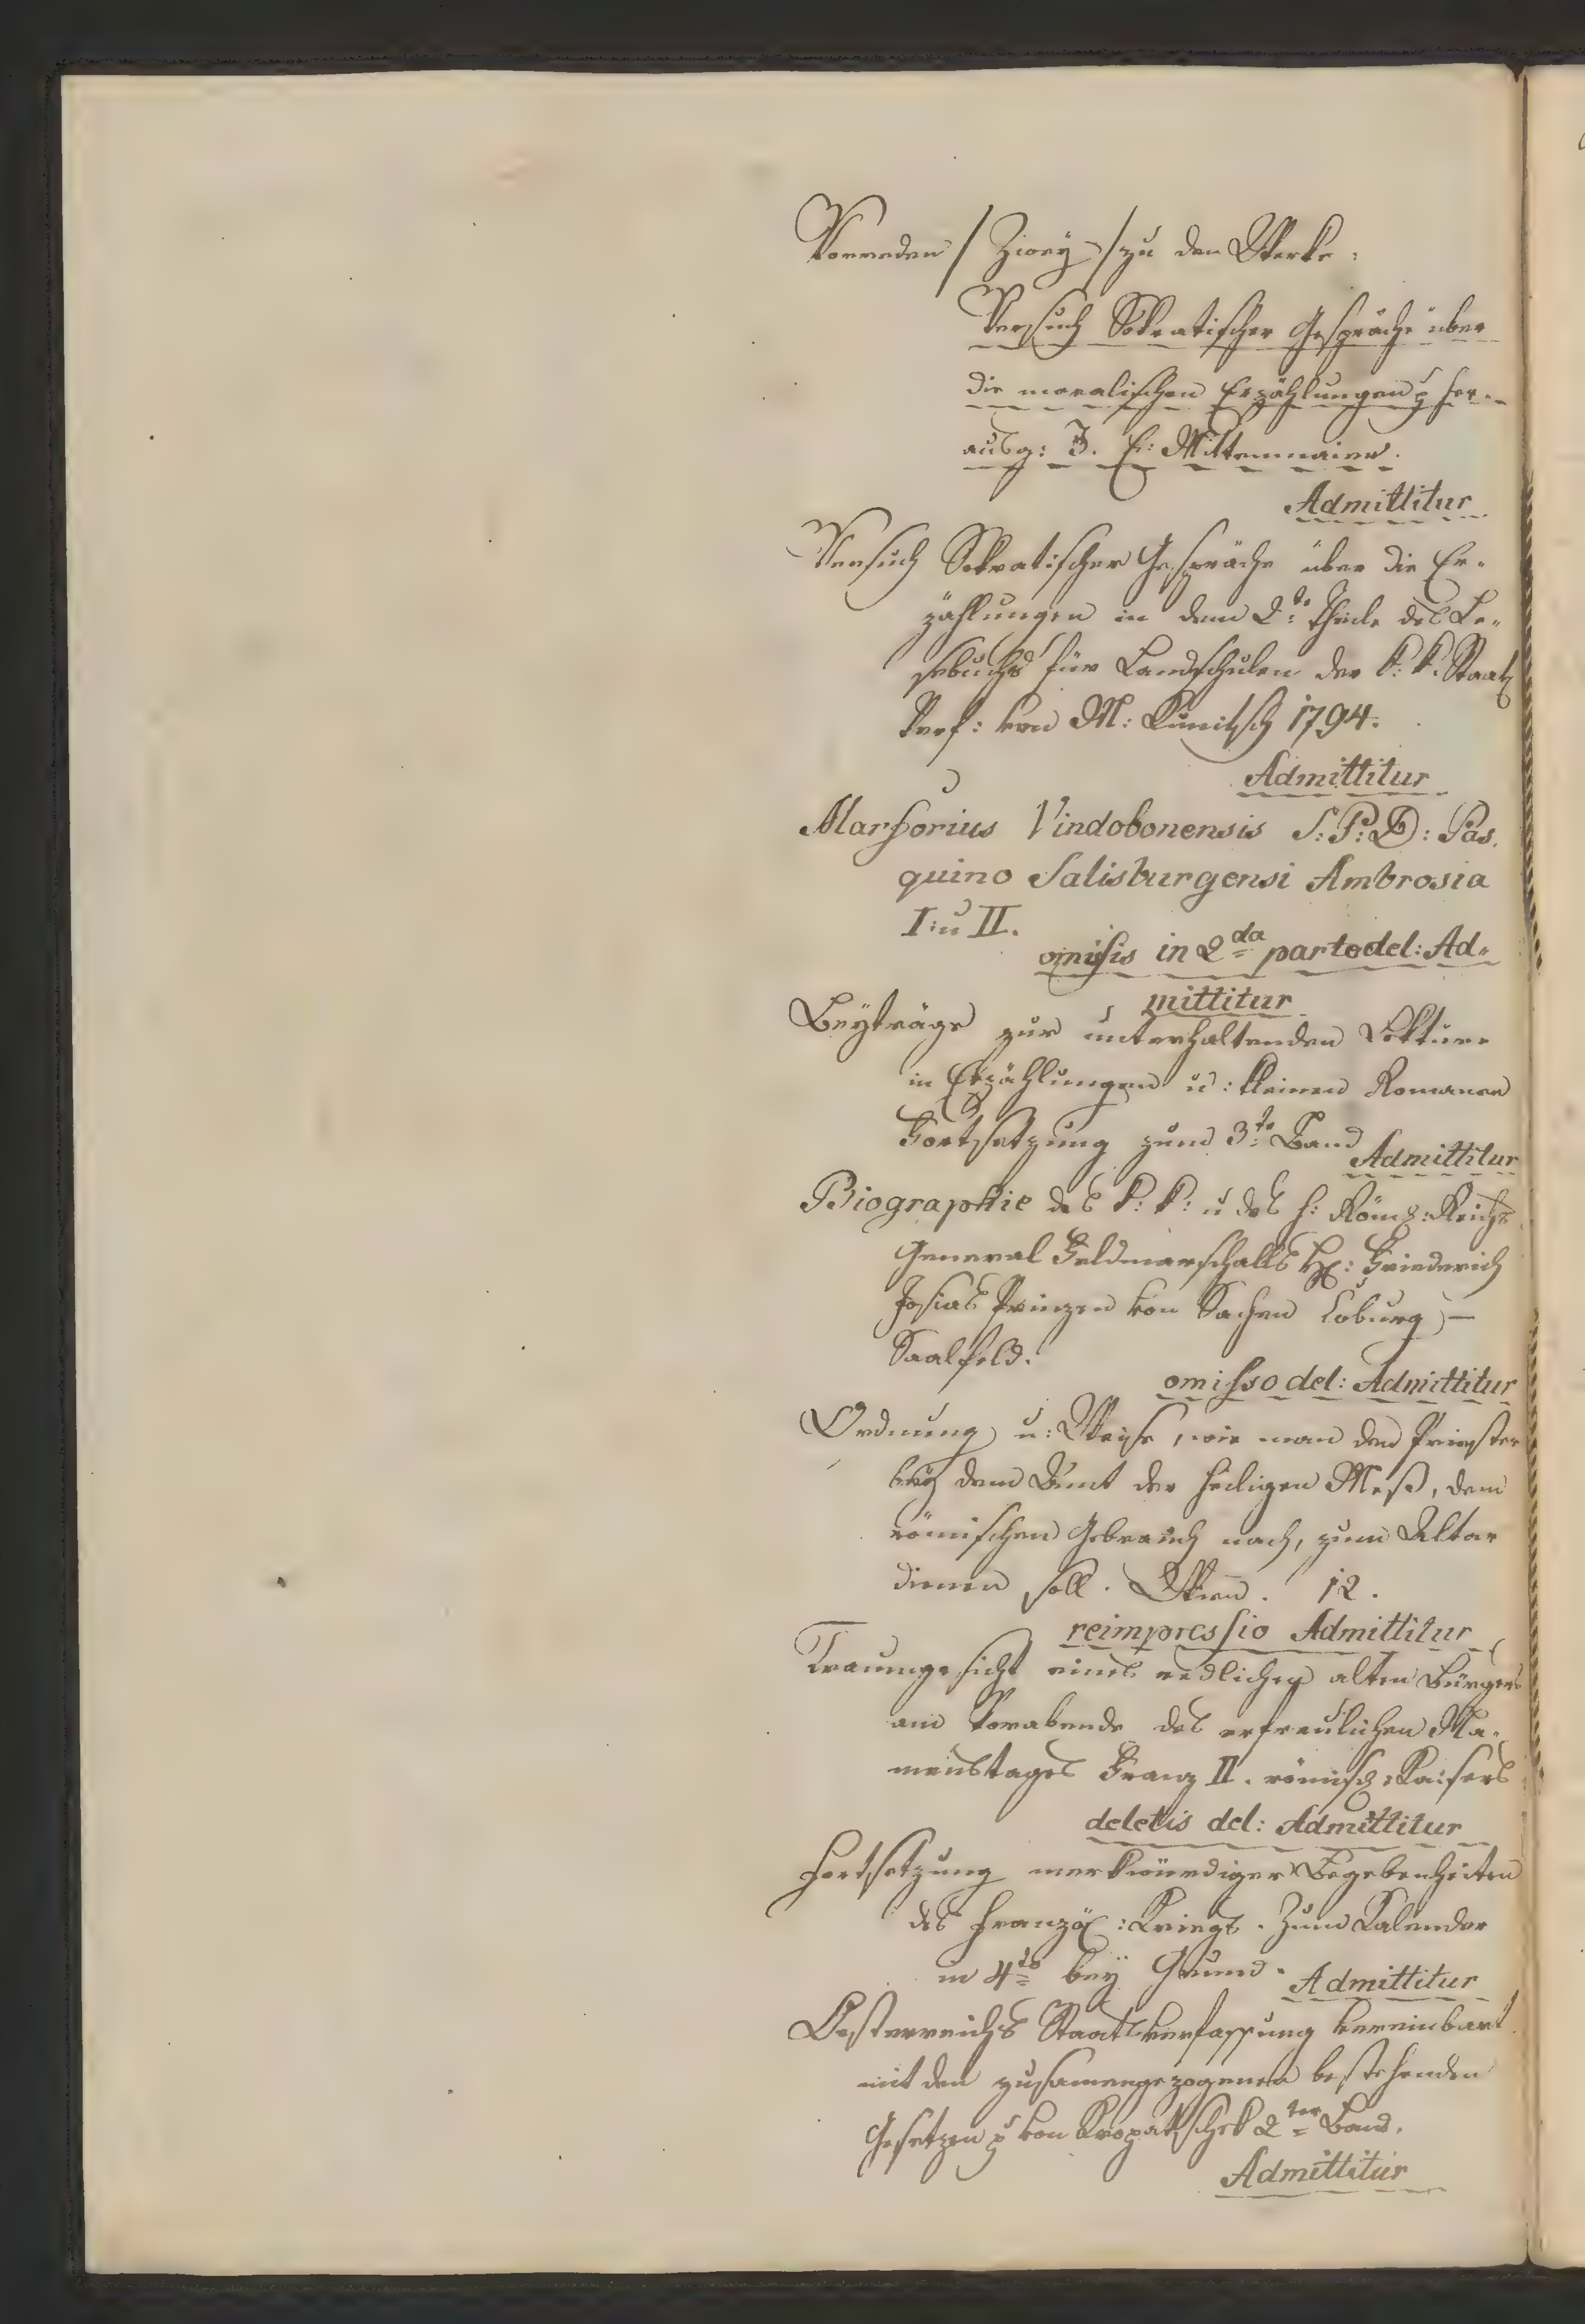 Vorreden / Zwey / zu den Werke:
Versuch Sokratischer Gespräche über
die moralischen Erzählungen ꝛc her-
ausg: J. E: Mittermaier.
Admittitur
Versuch Sokratischer Gespräche über die Er-
zählungen in dem 2:te Theile des Le-
sebuchs für Landschulen der k: k: Staat
Verf: von M: Kunitsch 1794.
Admittitur
Marforius Vindobonensis S: P: D: Pas-
quino Salisburgensi Ambrosia
I: u II.
omissis in 2da parte del: Ad-
mittitur
Beyträge zur unterhaltenden Lektüre
in Erzählungen u: kleinen Romanen
Fortsetzung zum 3:te Band
Admittitur
Biographie des k: k: u des h: Röm: Reichs
General Feldmarschalls H: Friederich
Josias Prinzen von Sachsen Coburg –
Saalfeld.
omisso del: Admittitur
Ordnung u: Weise, wie man dem Priester
bey dem Amt der heiligen Meß, dem
römischen Gebrauch nach, zum Altar
dienen soll. Wien. 12.
reimpressio Admittitur
Traumgesicht eines redlichen alten Bürgers
am Vorabende des erfreulichen Na-
menstages Franz II. römisch: Kaisers
deletis del: Admittitur
Fortsetzung merkwürdiger Begebenheiten
des Französ: Kriegs. Zum Kalender
in 4to bey Grund.
Admittitur
Oesterreichs Staatsverfassung vereinbart
mit den zusamengezogenen bestehenden
Gesetzen ꝛc von Kropatschek 2ter Band.
Admittitur